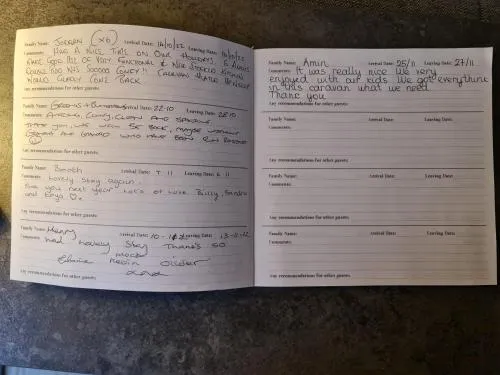 Family Name: JORDAN (x6) Arrival Date: 14/10/22 Leaving Date:
Comments: HAD A NICE TIME ON OUR HOLIDAY. 6 ADULTS
MADE GOOD USE OF VERY FUNCTIONAL & NICE STOCKED KITCHEN
COULD NOT COMFY!! CARAVAN HEATED
WOULD GLADLY COME BACK
Any recommendations for other guests:
Family Name: Arrival Date: 22-10 Leaving Date: 28-10
Comments: AMAZING, COMFY, CLEAN AND SPACIOUS,
THANK YOU, WE WILL BE BACK, MAYBE WITHOUT
WHO HAVE BEEN
Any recommendations for other guests:
Family Name: Booth Arrival Date: 11 Leaving Date: 11
Comments: Lovely stay again.
See you next year. Lots of love Billy, Sandra
and Enzo
Any recommendations for other guests:
Family Name: Henry Arrival Date: 10-11-22 Leaving Date: 13-11-22
Comments: had lovely Stay Thanks so
much
Elaine Kevin
xxx
Any recommendations for other guests:
Family Name: Amin Arrival Date: 25/11 Leaving Date: 27/11
Comments: It was really nice. We very
enjoyed with our kids. We got everything
in this caravan what we need.
Thank you
Any recommendations for other guests:
Family Name: Arrival Date: Leaving Date:
Comments:
Any recommendations for other guests:
Family Name: Arrival Date: Leaving Date:
Comments:
Any recommendations for other guests:
Family Name: Arrival Date: Leaving Date:
Comments:
Any recommendations for other guests: